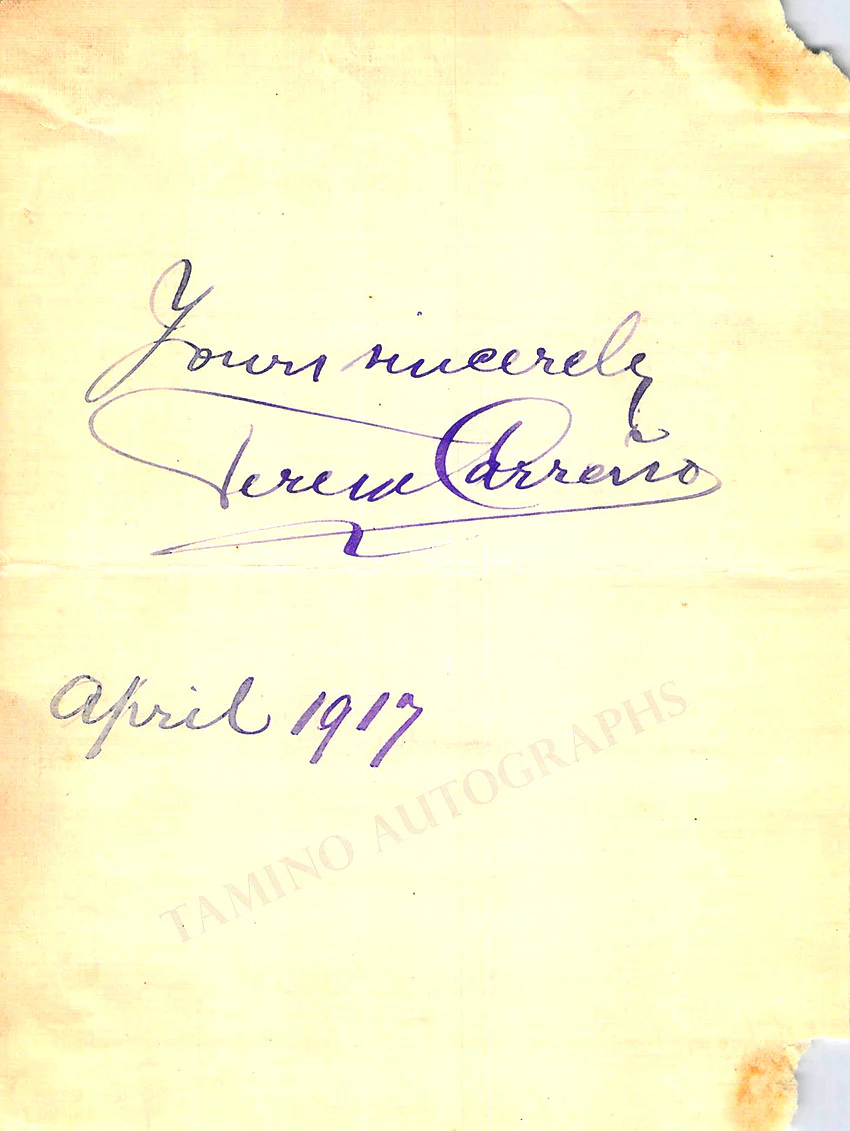 Yours sincerely
Teresa Carreño
April 1917
TAMINO AUTOGRAPHS